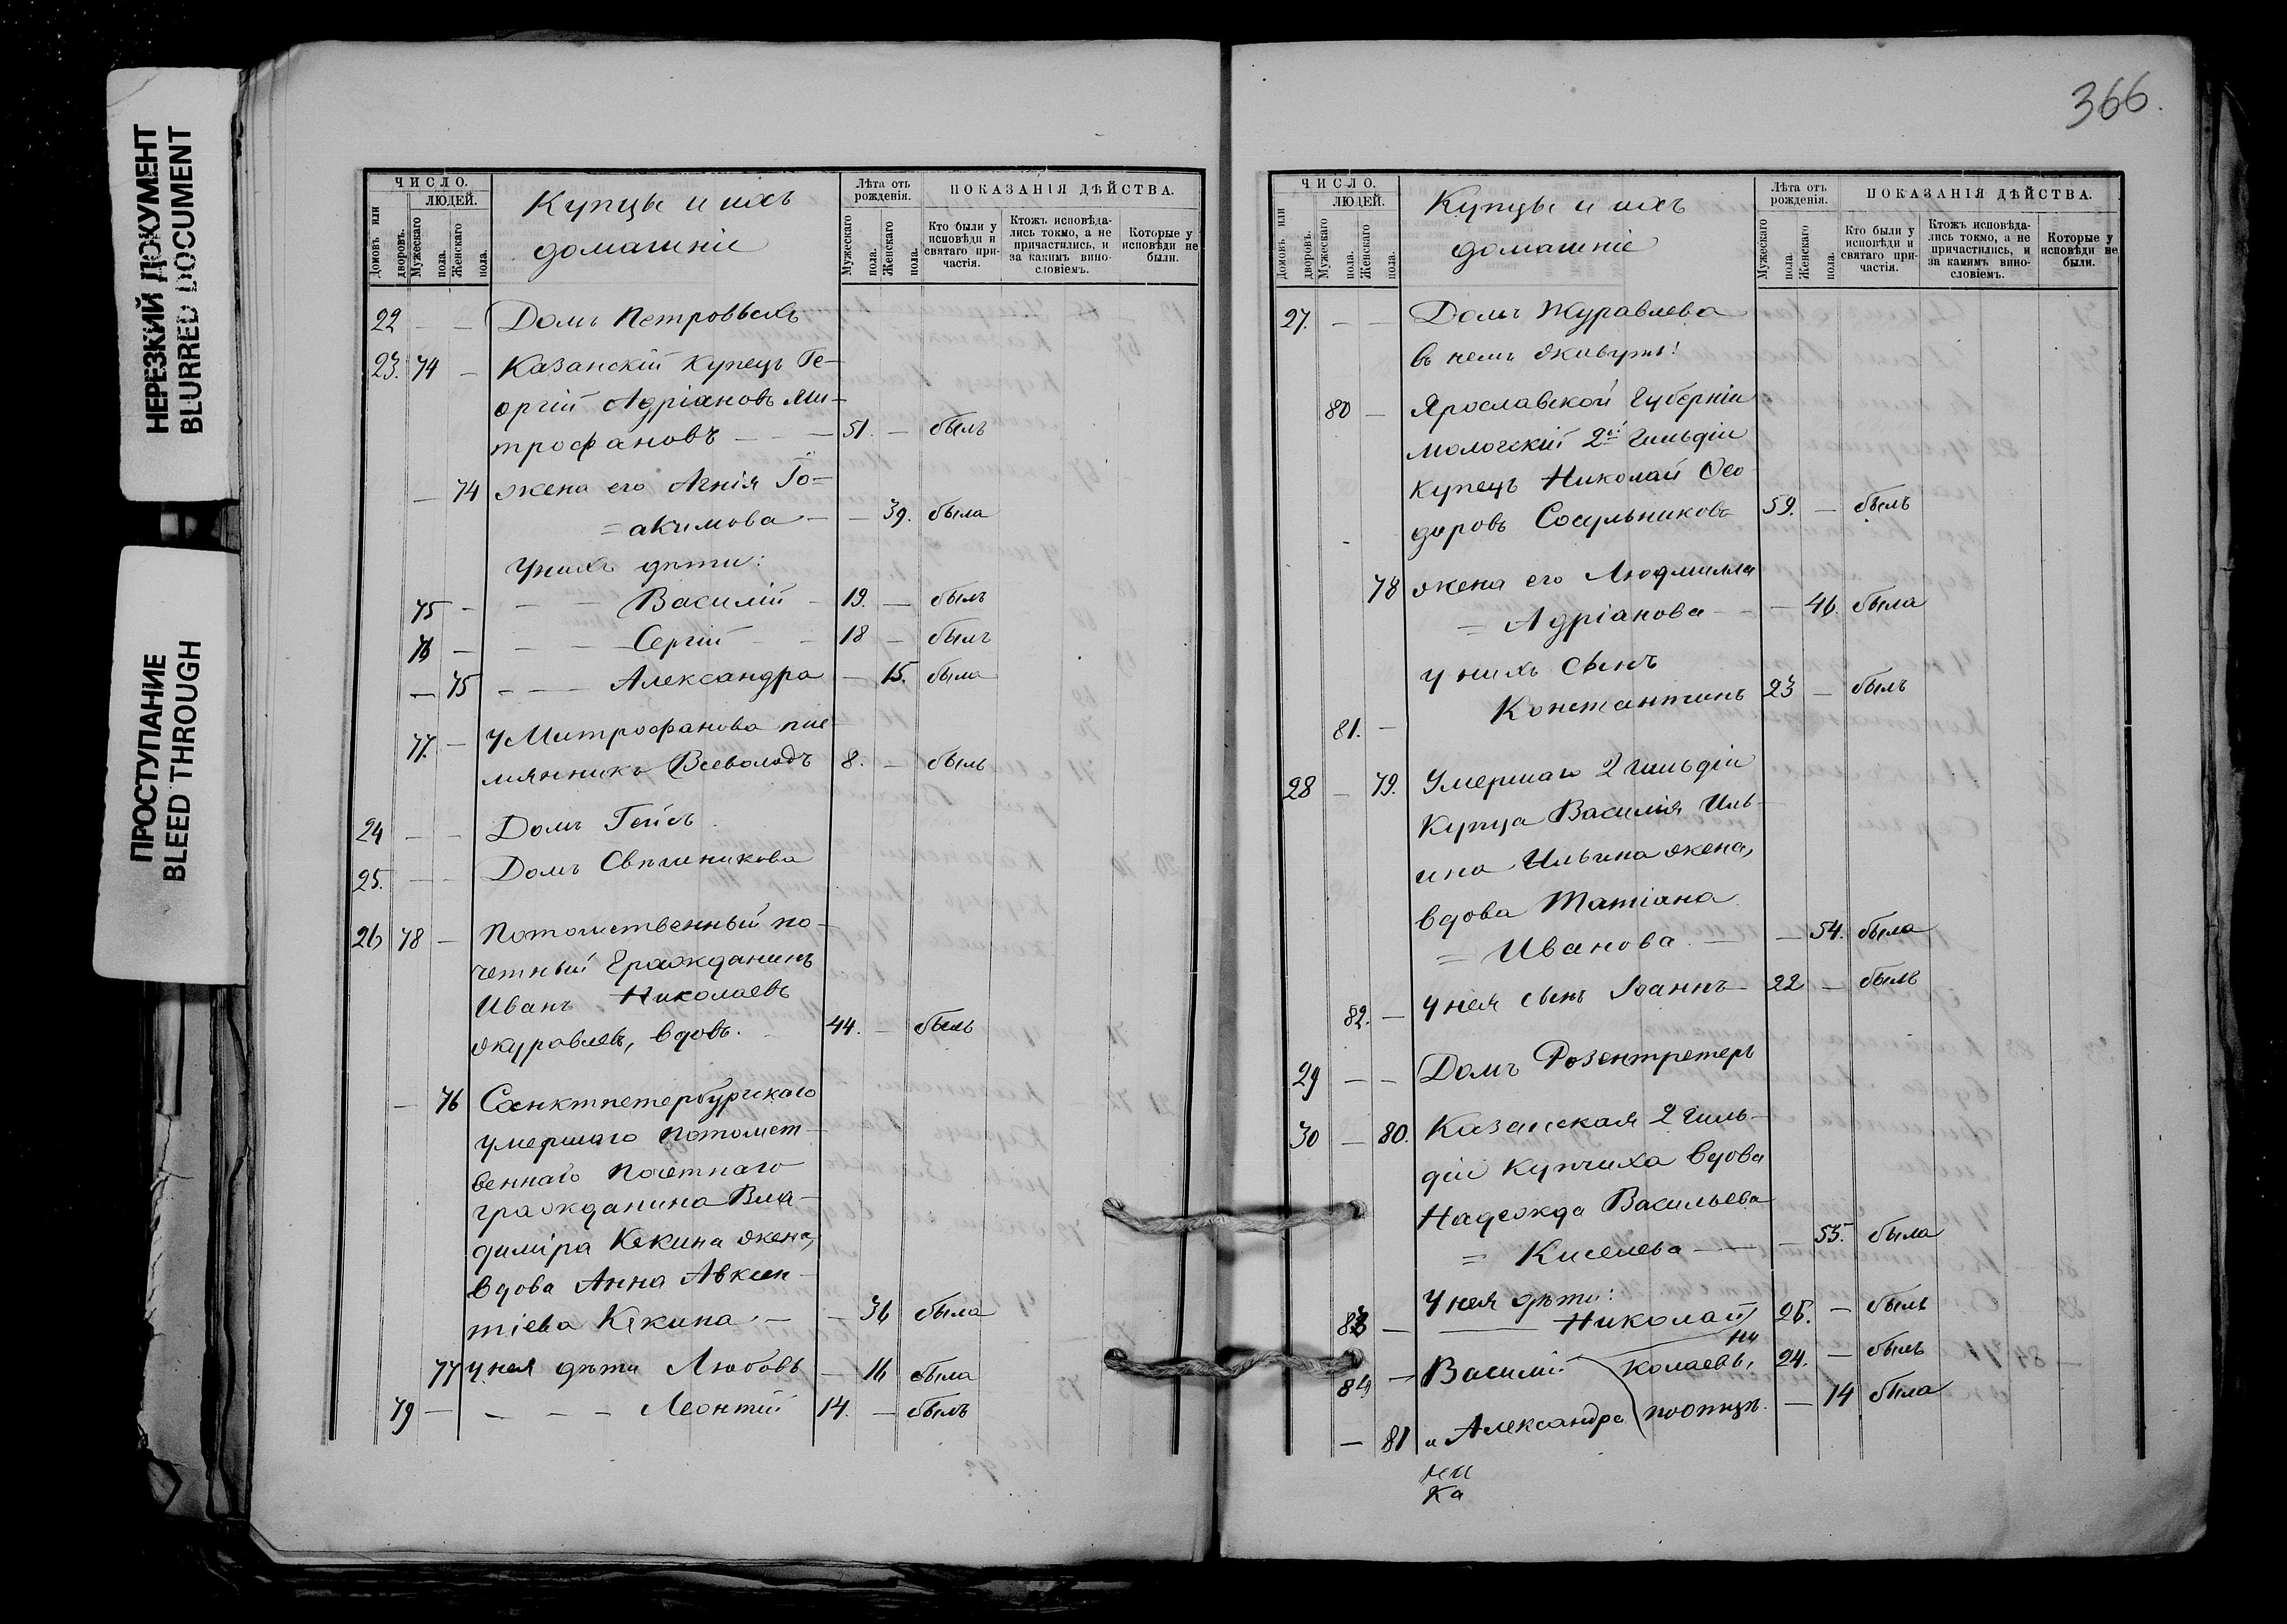 НЕРЕЗКИЙ ДОКУМЕНТ
BLURRED DOCUMENT
ПРОСТУПАНИЕ
BLEED THROUGH
ЧИСЛО.
ЛЮДЕЙ.
Домовъ или дворовъ.
Мужескаго пола.
Женскаго пола.
Купцы и ихъ
домашніе
Лѣта отъ рожденія.
Мужескаго пола.
Женскаго пола.
ПОКАЗАНІЯ ДѢЙСТВА.
Кто были у исповѣди и святаго причастія.
Ктожъ исповѣдались токмо, а не причастились, и за какимъ винословіемъ.
Которые у исповѣди не были.
22 — — Домъ Петровыхъ
23. 74 — Казанскій купецъ Ге-
оргій Адріановъ Ми-
трофановъ — — — 51. — былъ
— 74 жена его Агнія Іо-
=акимова — — 39. была
У нихъ дѣти:
75 — — — Василій — 19. — былъ
76 — — — Сергій — — 18 — былъ
— 75 — — — Александра — 15. была
77. — У Митрофанова пле-
мянникъ Всеволодъ 8. — былъ
24 — — Домъ Гейсъ
25. — — Домъ Свѣшникова
26 78 — Потомственный по-
четный гражданинъ
Иванъ Николаевъ
Журавлевъ, вдовъ. 44. — былъ
— 76 Санктпетербургскаго
умершаго потомст-
веннаго почетнаго
гражданина Вла-
диміра Кекина жена,
вдова Анна Авксен-
тіева Кекина — — 36 была
77 У нея дѣти Любовь — 16 была
79 — — — — Леонтій 14. — былъ
366.
ЧИСЛО.
ЛЮДЕЙ.
Домовъ или дворовъ.
Мужескаго пола.
Женскаго пола.
Купцы и ихъ
домашніе
Лѣта отъ рожденія.
Мужескаго пола.
Женскаго пола.
ПОКАЗАНІЯ ДѢЙСТВА.
Кто были у исповѣди и святаго причастія.
Ктожъ исповѣдались токмо, а не причастились, и за какимъ винословіемъ.
Которые у исповѣди не были.
27. — — Домъ Журавлева
въ немъ живутъ:
80 — Ярославской губерніи
Мологскій 2й гильдіи
купецъ Николай Ѳео
доровъ Сосульниковъ 59. — былъ
78 жена его Людмилла
= Адріанова — — 46. была
У нихъ сынъ
81. — Константинъ 23 — былъ
28 — 79. Умершаго 2 гильдіи
купца Василія Иль-
ина Ильина жена,
вдова Татіана
= Иванова. — — 54. была
82. — У нея сынъ Іоаннъ — 22 — былъ
29 — — Домъ Розентретеръ
30 — 80. Казанская 2 гиль-
діи купчиха вдова
Надежда Васильева
= Киселева — — 55. была
У нея дѣти:
83 — — Николай 26. — былъ
84 — Василій Ни
колаевы, 24. — былъ
— 81 и Александра по отцѣ. — 14 была